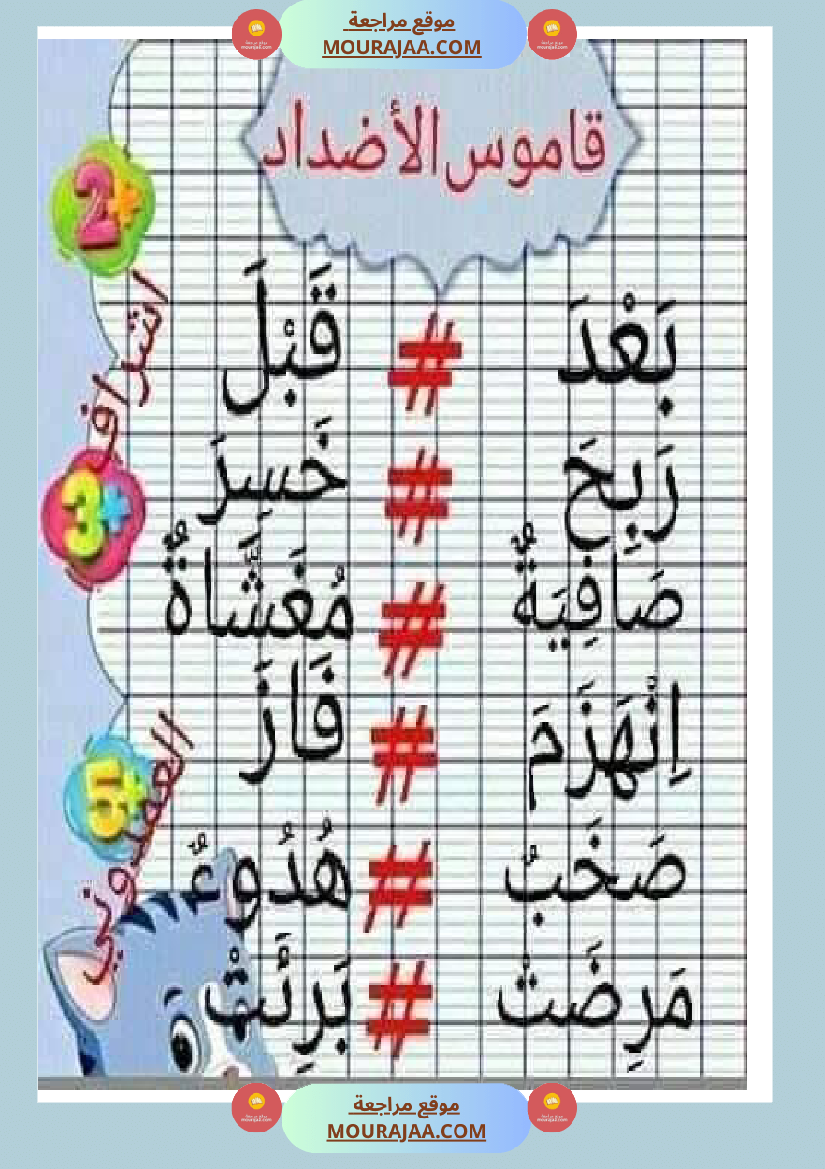 موقع مراجعة
MOURAJAA.COM
قاموس الأضداد
بَعْدَ # قَبْلَ
رَبِحَ # خَسِرَ
صَافِيَةٌ # مُغَشَّاةٌ
اِنْهَزَمَ # فَازَ
صَخَبٌ # هُدُوءٌ
مَرِضَتْ # بَرِئَتْ
2+
اشراف
3+
5+
العيدوني
موقع مراجعة
MOURAJAA.COM